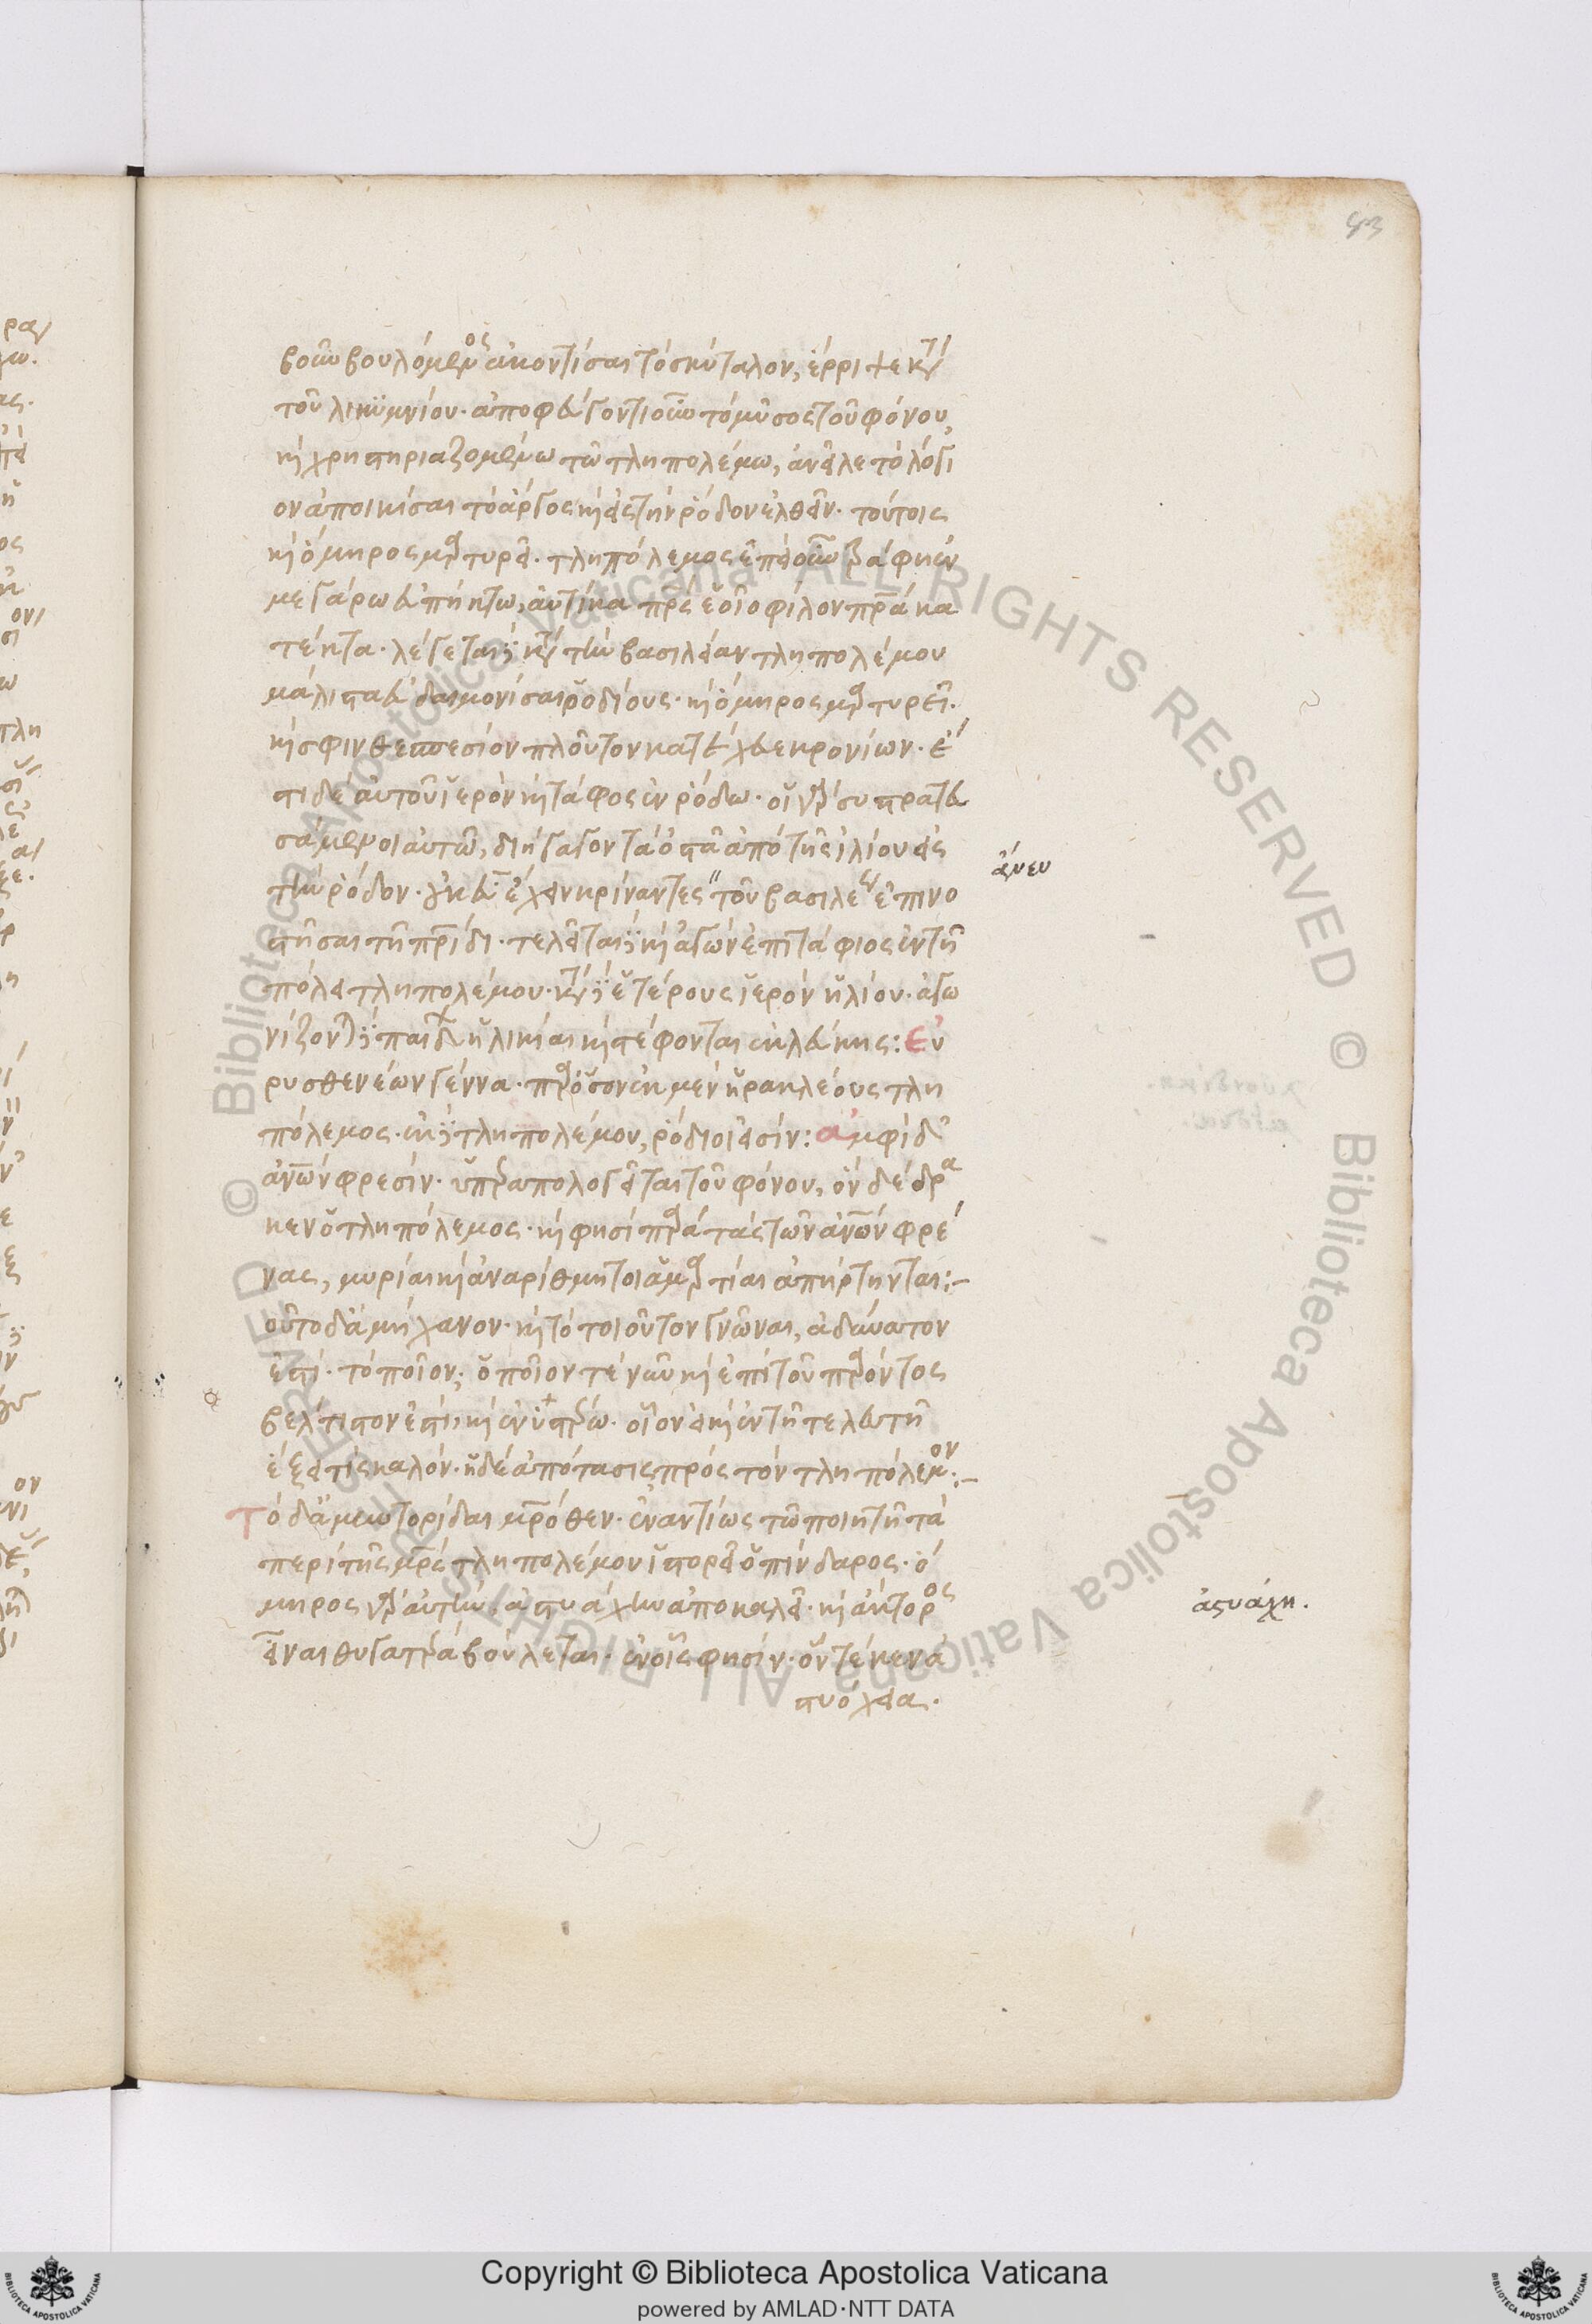 83
βοῦν βουλόμενος ἀκοντίσαι τὸ σκύταλον, ἔρριψε κατὰ
τοῦ λικυμνίου· ἀποφεύγοντι οὖν τὸ μῦσος τοῦ φόνου,
καὶ χρηστηριαζομένω τῶ τληπολέμω, ἀνεῖλε τὸ λόγι
ον ἀποικίσαι τὸ ἄργος καὶ εἰς τὴν ῥόδον ἐλθεῖν· τούτοις
καὶ ὅμηρος μαρτυρεῖ· τληπόλεμος ἐπεὶ οὖν τράφη ἐν
μεγάρω εὐπήκτω, αὐτίκα πατρὸς ἑοῖο φίλον μήτρωα κα
τέκτα· λέγεται δὲ κατὰ τὴν βασιλείαν τληπολέμου
μάλιστα εὐδαιμονίσαι ῥοδίους· καὶ ὅμηρος μαρτυρεῖ·
καί σφιν θεσπεσίον πλοῦτον κατέχευε κρονίων· ἔ
στι δὲ αὐτοῦ ἱερὸν καὶ τάφος ἐν ῥόδω· οἱ γὰρ συστρατευ
σάμενοι αὐτῶ, διήγαγον τὰ ὀστᾶ ἀπὸ τῆς ἰλίου εἰς
τὴν ῥόδον· οὐκ εὖ ἔχειν κρίναντες τοῦ βασιλέως ἐπινο
στῆσαι τῆ πατρίδι· τελεῖται δὲ καὶ ἀγὼν ἐπιτάφιος ἐν τῆ
πόλει τληπολέμου· κατὰ δὲ ἑτέρους ἱερὸν ἡλίου· ἀγω
νίζονται δὲ παίδων ἡλικίαι καὶ στέφονται ἐκ λεύκης: Εὐ
ρυσθενέων γέννα· παρόσον ἐκ μὲν ἡρακλέους τλη
πόλεμος· ἐκ δὲ τληπολέμου, ῥόδιοι εἰσίν: ἀμφὶ δ'
ἀνθρώπων φρεσίν· ὑπεραπολογεῖται τοῦ φόνου, ὃν δέδρα
κεν ὁ τληπόλεμος· καὶ φησὶ παρὰ τὰς τῶν ἀνθρώπων φρέ
νας, μυρίαι καὶ ἀναρίθμητοι ἁμαρτίαι ἀπήρτηνται:-
οὗτο δ' ἀμήχανον· καὶ τὸ τοιοῦτον γνῶναι, ἀδύνατον
ἐστί· τὸ ποῖον; ὁποῖόν τε νῦν καὶ ἐπὶ τοῦ παρόντος
βέλτιστον ἐστι, καὶ ἐν ὑστέρω· οἷον εἰ καὶ ἐν τῆ τελευτῆ
ἕξει τὶς καλόν· ἡ δὲ ἀπότασις, πρὸς τὸν τληπόλεμον:-
Τὸ δ' ἀμυντορίδαι ματρόθεν· ἐναντίως τῶ ποιητῆ τὰ
περὶ τῆς μητρὸς τληπολέμου ἱστορεῖ ὁ πίνδαρος· ὅ
μηρος γὰρ αὐτὴν, ἀστυάχην ἀποκαλεῖ· καὶ ἄκτορος
εἶναι θυγατέρα βούλεται· ἐν οἷς φησίν· ὃν τέκεν ἀ
στυόχεια.
ἄνευ
ἀςυάχη.